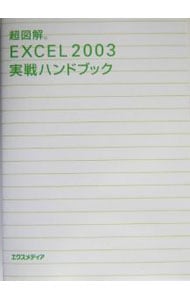 超図解。
EXCEL2003
実戦ハンドブック
エクスメディア